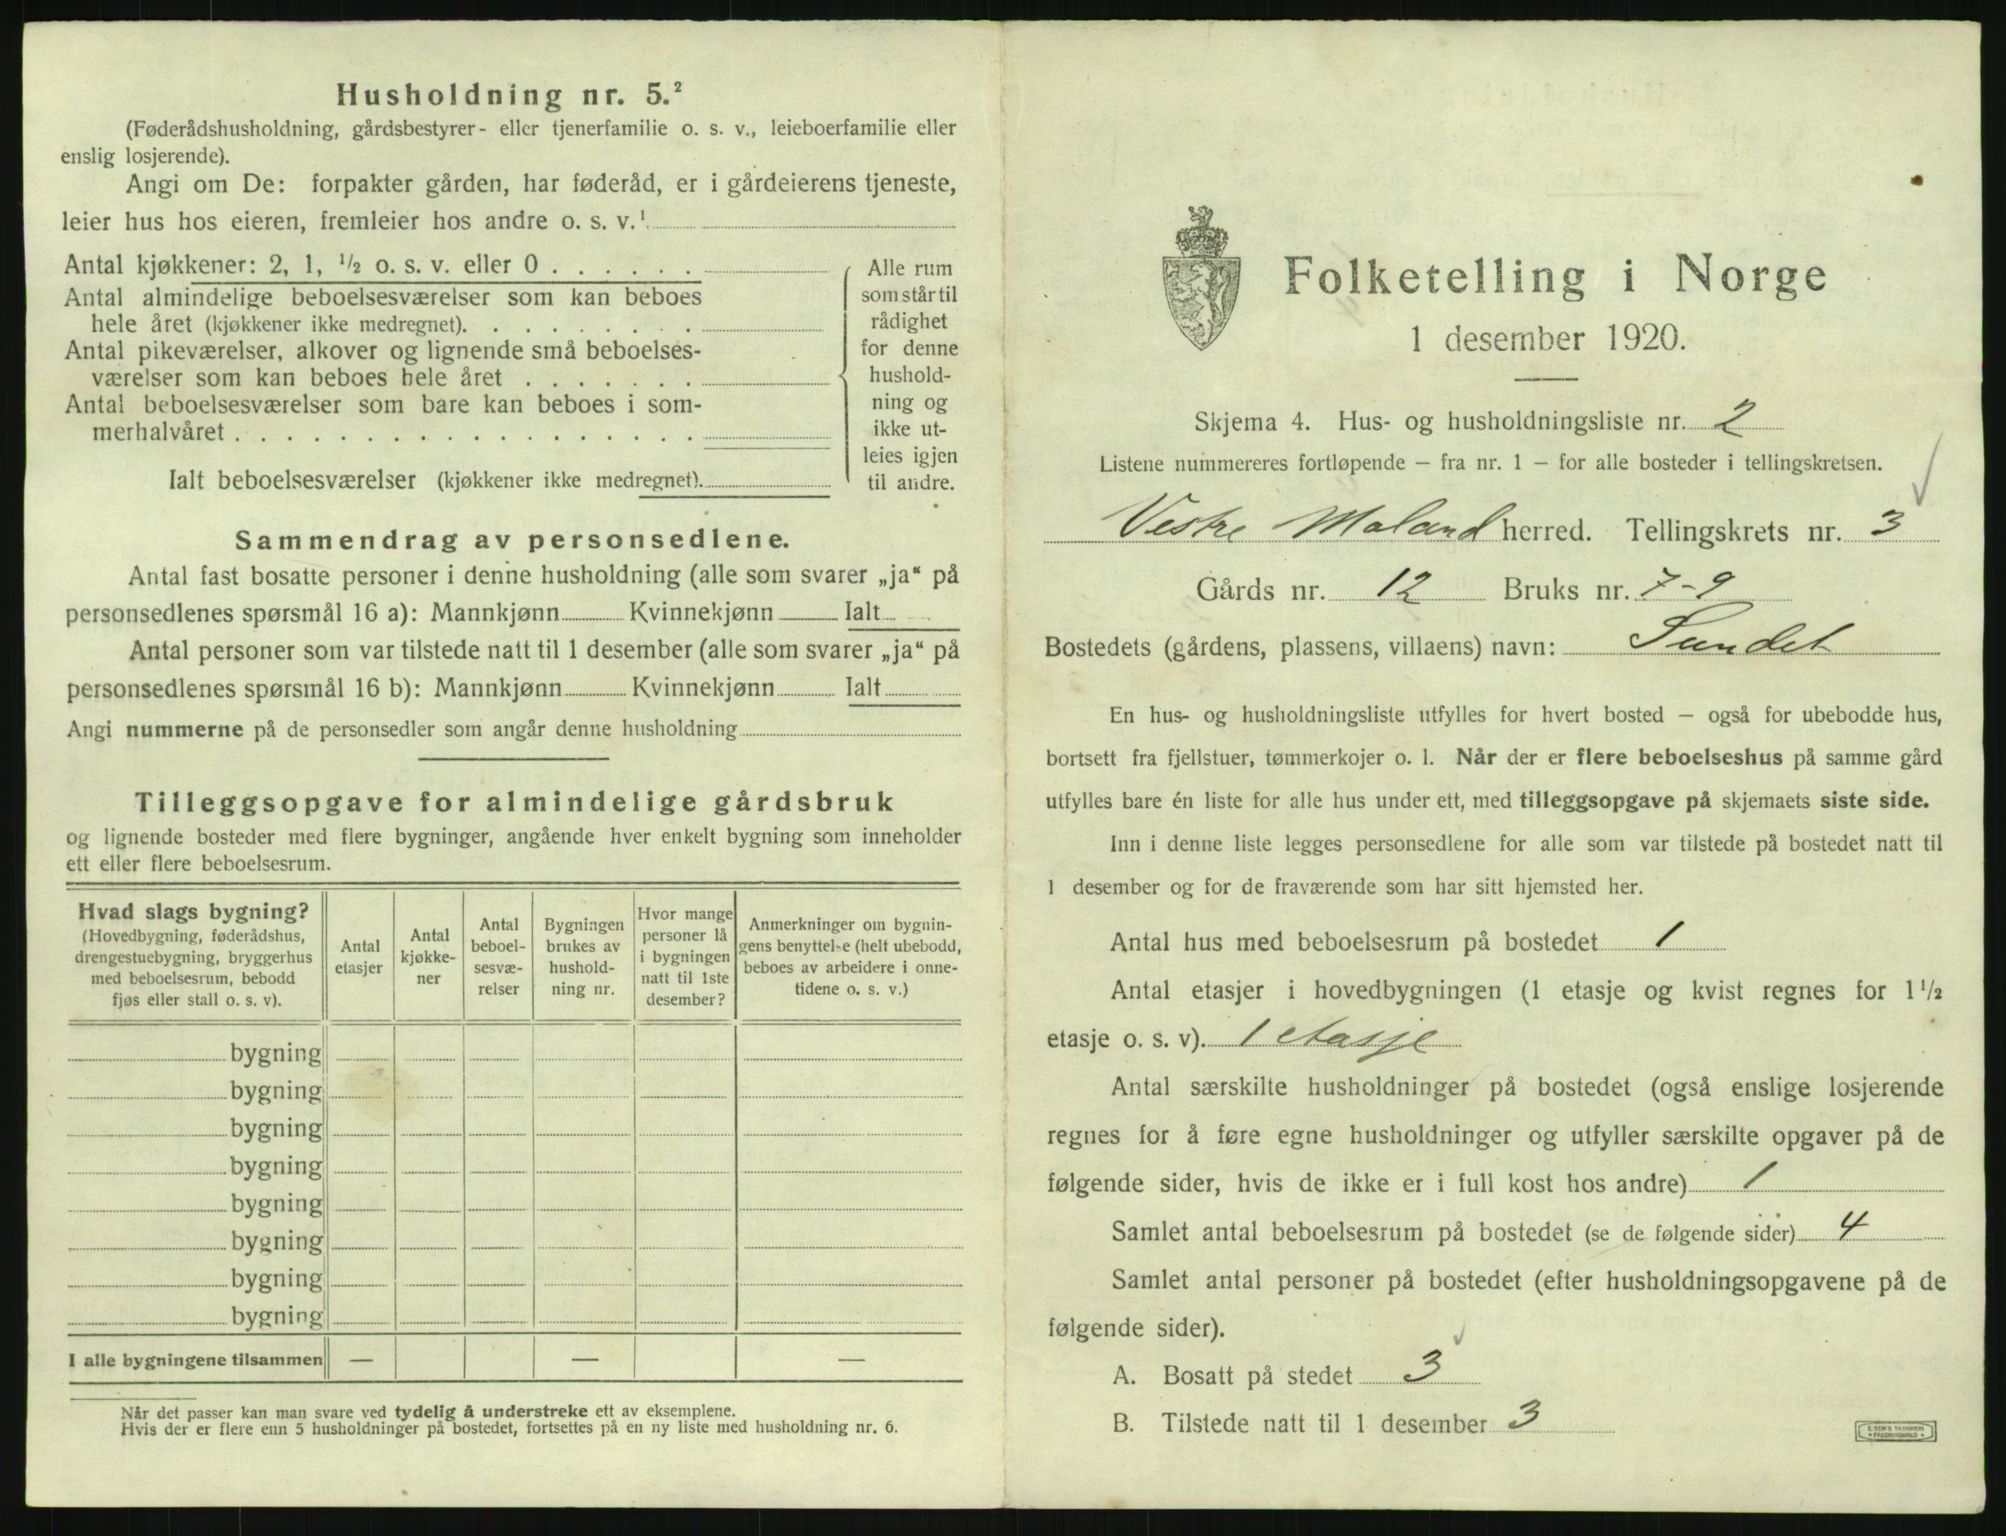 Husholdning nr. 5.²
(Føderådshusholdning, gårdsbestyrer- eller tjenerfamilie o. s. v., leieboerfamilie eller
enslig losjerende).
Angi om De: forpakter gården, har føderåd, er i gårdeierens tjeneste,
leier hus hos eieren, fremleier hos andre o. s. v.¹
Antal kjøkkener: 2, 1, ½ o. s. v. eller 0 . . . . . .
Antal almindelige beboelsesværelser som kan beboes
hele året (kjøkkener ikke medregnet). . . . . . . . .
Antal pikeværelser, alkover og lignende små beboelses-
værelser som kan beboes hele året . . . . . . .
Antal beboelsesværelser som bare kan beboes i som-
merhalvåret . . . . . . . . . . . . . . . . . .
Ialt beboelsesværelser (kjøkkener ikke medregnet).
Alle rum
som står til
rådighet
for denne
hushold-
ning og
ikke ut-
leies igjen
til andre.
Sammendrag av personsedlene.
Antal fast bosatte personer i denne husholdning (alle som svarer „ja“ på
personsedlenes spørsmål 16 a): Mannkjønn Kvinnekjønn Ialt
Antal personer som var tilstede natt til 1 desember (alle som svarer „ja“ på
personsedlenes spørsmål 16 b): Mannkjønn Kvinnekjønn Ialt
Angi nummerne på de personsedler som angår denne husholdning
Tilleggsopgave for almindelige gårdsbruk
og lignende bosteder med flere bygninger, angående hver enkelt bygning som inneholder
ett eller flere beboelsesrum.
Hvad slags bygning?
(Hovedbygning, føderådshus,
drengestuebygning, bryggerhus
med beboelsesrum, bebodd
fjøs eller stall o. s. v).
Antal
etasjer
Antal
kjøkke-
ner
Antal
beboel-
sesvæ-
relser
Bygningen
brukes av
hushold-
ning nr.
Hvor mange
personer lå
i bygningen
natt til 1ste
desember?
Anmerkninger om bygnin-
gens benyttelse (helt ubebodd,
beboes av arbeidere i onne-
tidene o. s. v.)
bygning
bygning
bygning
bygning
bygning
bygning
bygning
bygning
I alle bygningene tilsammen — — —
Når det passer kan man svare ved tydelig å understreke ett av eksemplene.
Hvis der er flere enn 5 husholdninger på bostedet, fortsettes på en ny liste med husholdning nr. 6.
Folketelling i Norge
1 desember 1920.
Skjema 4. Hus- og husholdningsliste nr. 2
Listene nummereres fortløpende — fra nr. 1 — for alle bosteder i tellingskretsen.
Vestre Moland herred. Tellingskrets nr. 3
Gårds nr. 12 Bruks nr. 7-9
Bostedets (gårdens, plassens, villaens) navn: Sundet
En hus- og husholdningsliste utfylles for hvert bosted — også for ubebodde hus,
bortsett fra fjellstuer, tømmerkojer o. l. Når der er flere beboelseshus på samme gård
utfylles bare én liste for alle hus under ett, med tilleggsopgave på skjemaets siste side.
Inn i denne liste legges personsedlene for alle som var tilstede på bostedet natt til
1 desember og for de fraværende som har sitt hjemsted her.
Antal hus med beboelsesrum på bostedet 1
Antal etasjer i hovedbygningen (1 etasje og kvist regnes for 1½
etasje o. s. v). 1 etasje
Antal særskilte husholdninger på bostedet (også enslige losjerende
regnes for å føre egne husholdninger og utfyller særskilte opgaver på de
følgende sider, hvis de ikke er i full kost hos andre) 1
Samlet antal beboelsesrum på bostedet (se de følgende sider) 4
Samlet antal personer på bostedet (efter husholdningsopgavene på de
følgende sider).
A. Bosatt på stedet 3
B. Tilstede natt til 1 desember 3